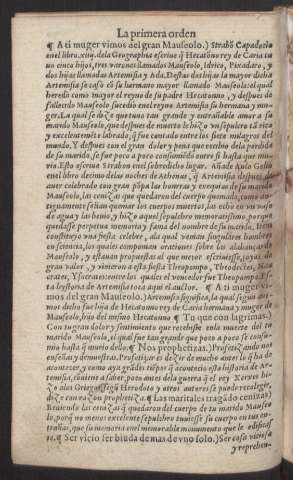 La primera orden
¶ A ti muger vimos del gran Mauseolo.) Strabõ Capadocio
en el libro. xiiij. dela Geographia escriue q̃ Hecatõno rey de Caria tu
uo cinco hijos, tres varones llamados Mauseolo, Idrico, Pixadoro, y
dos hijas llamadas Artemisia y Ada. Destas dos hijas la mayor dicha
Artemisia se caso cõ su hermano mayor llamado Mauseolo: el qual
heredo como mayor el reyno de su padre Hecatõno, y despues de
su muerte Mauseolo sucedio enel reyno Artemisia su hermana y mu-
ger. La qual se dize que tuuo tan grande y entrañable amor a su
marido Mauseolo, que despues de muerto le hizo vn sepulcro tã rico
y excelentemẽte labrado, q̃ fue contado entre los siete milagros del
mundo. Y despues con el gran dolor y pena que rescibio dela perdida
de su marido, se fue poco a poco consumiendo entre si hasta que mu-
rio. Esto escriue Strabon enel sobredicho lugar. Añade Aulo Gelio
enel libro decimo delas noches de Athenas, q̃ Artemisia despues de
auer celebrado con grã põpa las honrras y exequias de su marido
Mauseolo, las cenizas que quedaron del cuerpo quemado, como an-
tiguamente solian quemar los cuerpos muertos, las echo en vn vaso
de agua y las beuio, y hizo aquel sepulchro memoratissimo, porque
quedasse perpetua memoria y fama del nombre de su marido. Item
constituyo vna fiesta celebre, ala qual venian singulares hombres
en sciencia, los quales componian orationes sobre las alabanças de
Mauseolo, y estauan propuestas al que mejor escriuiesse, joyas de
gran valor, y vinieron a esta fiesta Theopompo, Theodectes, Nau-
crates, Y socrates: entre los quales el vencedor fue Theopompo. Es-
ta hystoria de Artemisia toca aqui el auctor. ¶ A ti muger vi-
mos del gran Mauseolo.) Artemisia significa, la qual segun aue-
mos dicho fue hija de Hecatomo rey de Caria hermana y muger de
Mauseolo, hijo del mismo Hecatomo ¶ Tu que con lagrimas.)
Con tu gran dolor y sentimiento que recebiste enla muerte del tu
marido Mauseolo, el qual fue tan grande que poco a poco se consu-
mio hasta q̃ murio dello. ¶ Nos prophetizas.) Prophetizas nos
enseñas y demuestras. Prophetizar es dezir de mucho antes lo q̃ ha de
acontecer, y como aya grãdes tiẽpos q̃ aconteciò esta historia de Ar-
temisia, conuiene a saber, poco antes dela guerra q̃ el rey Xerxes hi-
zo alos Griegos segũ Herodoto y otros autores se puede recolegir,
dize con razon prophetiza. ¶ Las maritales tragãdo cenizas)
Beuiendo las cenizas q̃ quedaron del cuerpo de tu marido Mauseo
lo, porq̃ no menos excelente sepulchro tuuiesse su cuerpo en tus en-
trañas, que su memoria enel memorable monumento que le edificas-
te. ¶ Ser vicio ser biuda de mas de vno solo.) Ser cosa viciosa
y reprehen-